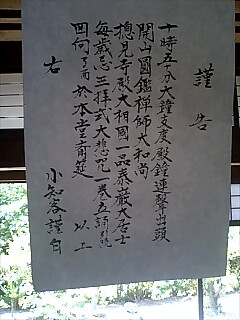 謹告
十時五分大鐘支度殿鐘連聲出頭
開山國鑑禅師大和尚
摠見寺殿大相國一品泰巖大居士
毎歳忌三拝式大悲咒一巻五誦
回向了而於本堂斎筵 以上
右
小知客謹白